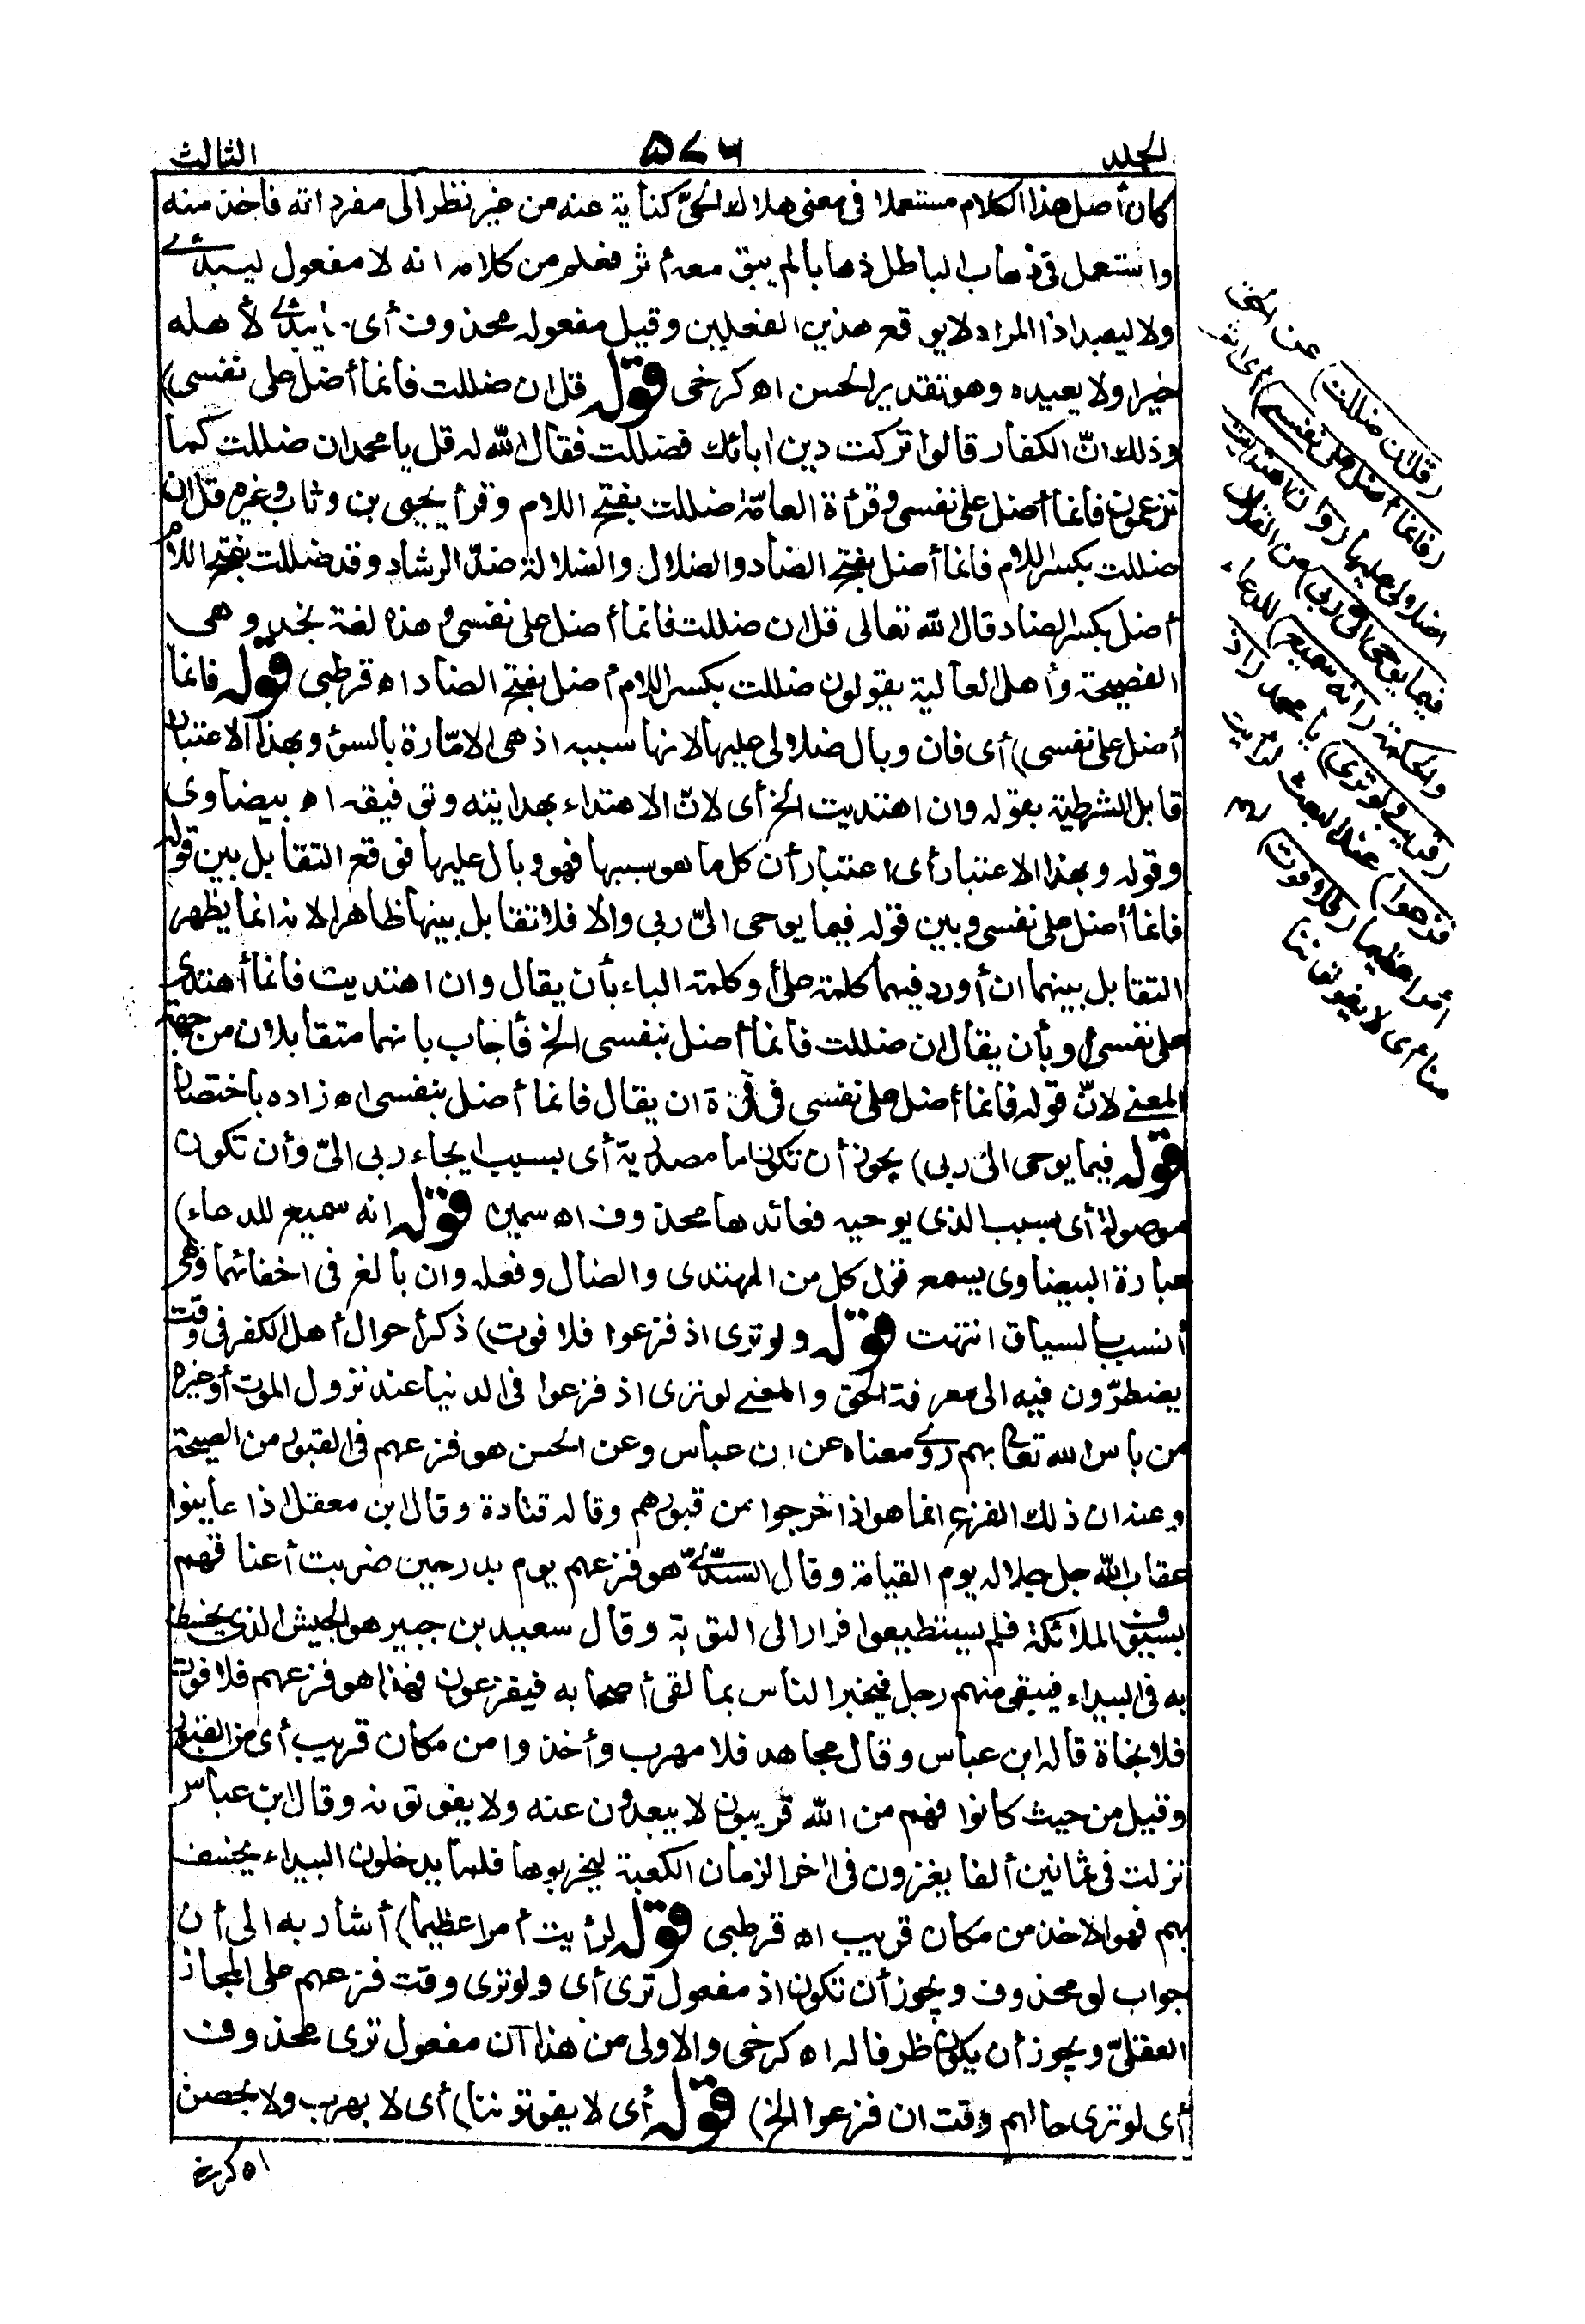 الجلد
٥٧٦
الثالث
كان أصل هذا الكلام مستعملا فى معنى هلاك الحىّ كناية عنه من غير نظر الى مفرداته فأخذ منه
واستعمل فى ذهاب الباطل ذهابا لم يبق معه أثر فعلم من كلامه انه لا مفعول ليبدئ
ولا ليعيد اذ المراد لا يوقع هذين الفعلين وقيل مفعوله محذوف أى يبدئ لأهله
خيرا ولا يعيده وهو تقدير الحسن اه كرخى قوله قل ان ضللت فانما أضل على نفسى)
وذلك انّ الكفار قالوا تركت دين ابائك فضللت فقال الله له قل يا محمد ان ضللت كما
تزعمون فانما أضل على نفسى وقرأة العامّة ضللت بفتح اللام وقرأ يحيى بن وثاب وغيره قل ان
ضللت بكسر اللام فانما أضل بفتح الضاد والضلال والضلالة ضدّ الرشاد وقد ضللت بفتح اللام
أضل بكسر الضاد قال الله تعالى قل ان ضللت فانما أضل على نفسى وهذه لغة نجد وهى
الفصيحة وأهل العالية يقولون ضللت بكسر اللام أضل بفتح الضاد اه قرطبى قوله فانما
أضل على نفسى) أى فان وبال ضلالى عليها لانها سببه اذ هى الامّارة بالسوء وبهذا الاعتبار
قابل الشرطية بقوله وان اهتديت الخ أى لانّ الاهتداء بهدايته وتوفيقه اه بيضاوى
وقوله وبهذا الاعتبار أى اعتبار أن كل ما هو سببها فهو وبال عليها فوقع التقابل بين قوله
فانما أضل على نفسى وبين قوله فيما يوحى الىّ ربى والا فلا تقابل بينها ظاهرا لانه انما يظهر
التقابل بينهما ان أورد فيهما كلمة على أو كلمة الباء بأن يقال وان اهتديت فانما أهتدى
على نفسى أو بأن يقال ان ضللت فانما أضل بنفسى الخ فأجاب بانهما متقابلان من جهة
المعنى لانّ قوله فانما أضل على نفسى فى قوّة ان يقال فانما أضل بنفسى اه زاده باختصار
قوله فيما يوحى الىّ ربى) يجوز أن تكون ما مصدرية أى بسبب ايحاء ربى الىّ وأن تكون
موصولة أى بسبب الذى يوحيه فعائدها محذوف اه سمين قوله انه سميع للدعاء)
عبارة البيضاوى يسمع قول كل من المهتدى والضال وفعله وان بالغ فى اخفائهما وهى
أنسب بالسياق انتهت قوله ولو ترى اذ فزعوا فلا فوت) ذكر أحوال أهل الكفر فى وقت
يضطرّون فيه الى معرفة الحق والمعنى لو ترى اذ فزعوا فى الدنيا عند نزول الموت أو غيره
من باس الله تعالى بهم روى معناه عن ابن عباس وعن الحسن هو فزعهم فى القبور من الصيحة
وعنه ان ذلك الفزع انما هو اذا خرجوا من قبورهم وقاله قتادة وقال ابن معقل اذا عاينوا
عقاب الله جل جلاله يوم القيامة وقال السدّىّ هو فزعهم يوم بدر حين ضربت أعناقهم
بسيوف الملائكة فلم يستطيعوا فرارا الى التوبة وقال سعيد بن جبير هو الجيش الذى يخسف
به فى البيداء فيبقى منهم رجل فيخبر الناس بما لقى أصحابه فيفزعون فهذا هو فزعهم فلا فوت
فلا نجاة قاله ابن عباس وقال مجاهد فلا مهرب وأخذوا من مكان قريب أى من القبور
وقيل من حيث كانوا فهم من الله قريبون لا يبعدون عنه ولا يفوتونه وقال ابن عباس
نزلت فى ثمانين ألفا يغزون فى اخر الزمان الكعبة ليخربوها فلما يدخلون البيداء يخسف
بهم فهو الاخذ من مكان قريب اه قرطبى قوله لرأيت أمرا عظيما) أشار به الى أن
جواب لو محذوف ويجوز أن تكون اذ مفعول ترى أى ولو ترى وقت فزعهم على المجاز
العقلىّ ويجوز أن يكون ظرفا له اه كرخى والاولى من هذا أن مفعول ترى محذوف
أى لو ترى حالهم وقت ان فزعوا الخ) قوله أى لا يفوتوننا) أى لا يهرب ولا بحصن
اه كرخى
(قل ان ضللت) عن الحق
(فانما أضل على نفسى) أى اثم
اضلالى عليها (وان اهتديت
فيما يوحى الى ربى) من القرآن
والحكمة (انه سميع) للدعاء
(قريب ولو ترى) يا محمد (اذ
فزعوا) عند البعث لرأيت
أمرا عظيما (فلا فوت) لهم
منا أى لا يفوتوننا